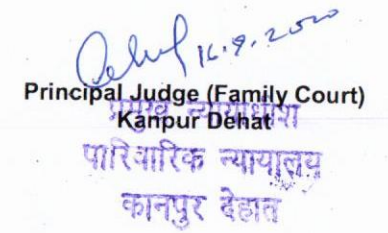 16.9.2020
Principal Judge (Family Court)
Kanpur Dehat
प्रमुख न्यायाधीश
पारिवारिक न्यायालय
कानपुर देहात